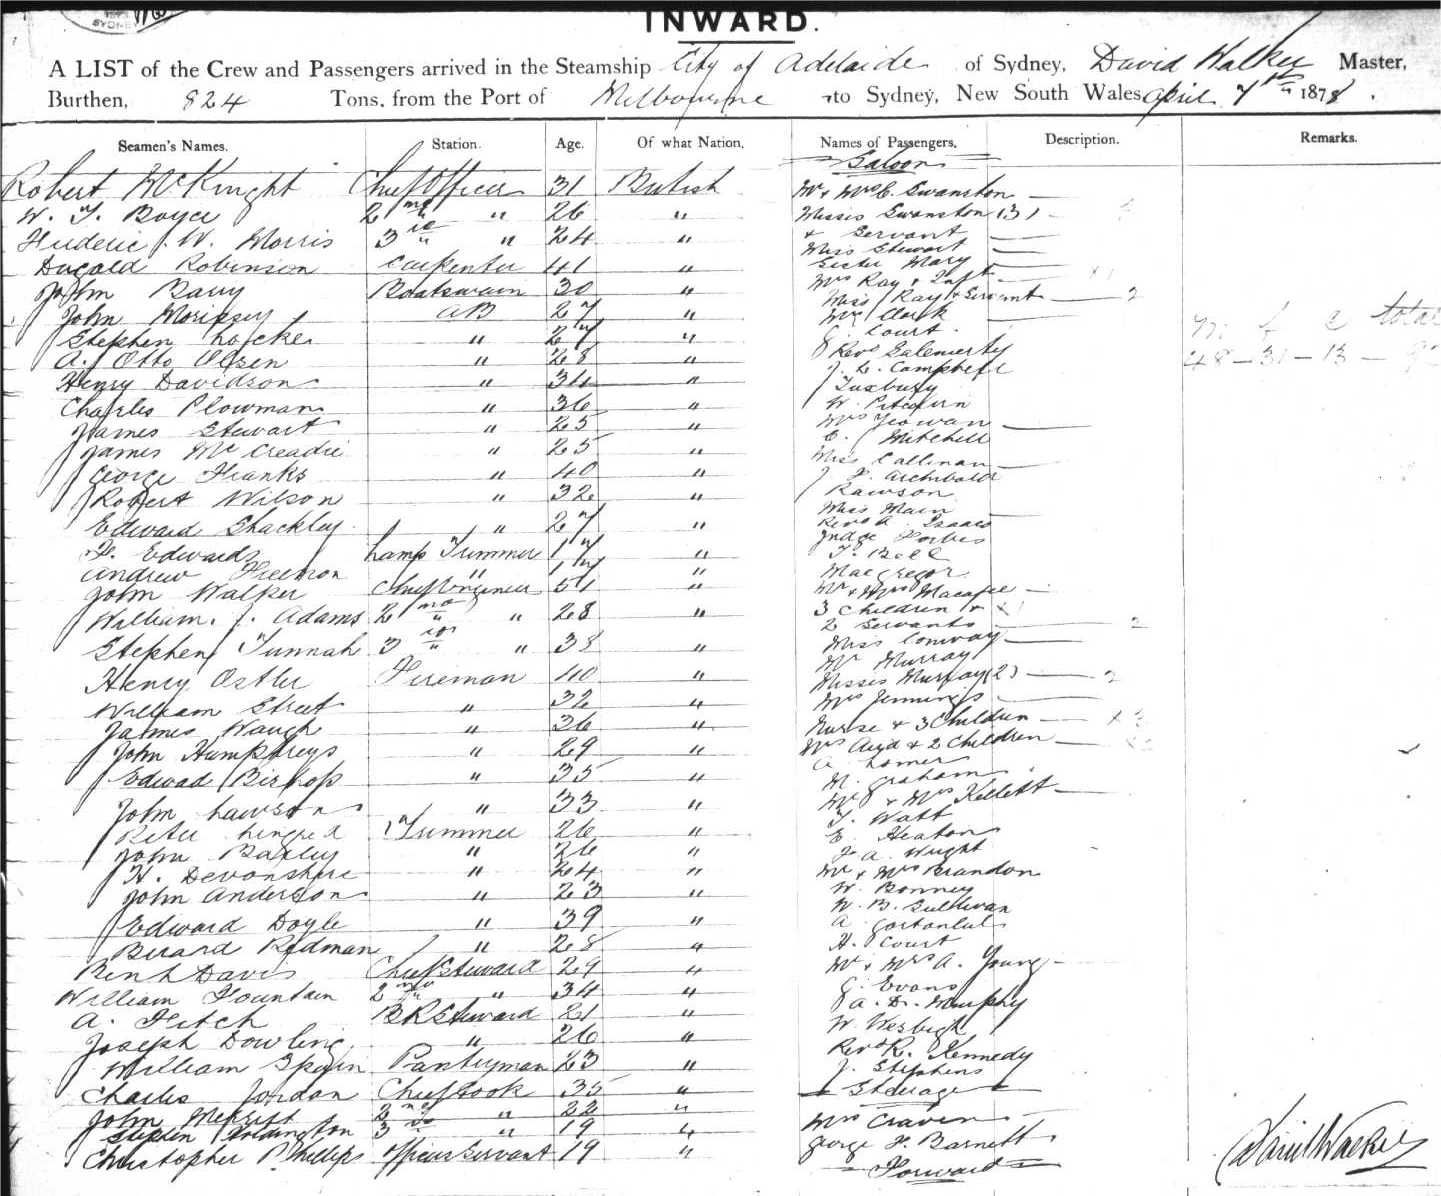 SYDNEY
INWARD.
A LIST of the Crew and Passengers arrived in the Steamship City of Adelaide of Sydney, David Walker Master,
Burthen, 824 Tons, from the Port of Melbourne to Sydney, New South Wales April 7th 1878.
Seamen's Names. Station. Age. Of what Nation. Names of Passengers. Description. Remarks.
Saloon
Robert McKnight Chief Officer 31 British Mr & Mrs C. Swanston
W. T. Boyce 2nd " " 26 " Misses Swanston (3)
Frederic W. Morris 3rd " " 24 " & Servant
Miss Stewart
Dugald Robinson Carpenter 41 " Sister Mary
Mrs Ray & Inft
John Barry Boatswain 30 " Miss Ray & Servant 2
John Morissey AB 27 " Mrs Clark
m f c total
Stephen Locke " 27 " J Court
48 - 31 - 13 - 92
A. Otto Olsen " 28 " Revd
J. L. Campbell
Henry Davidson " 34 " Tuxbury
Charles Plowman " 36 " W. Pitcairn
James Stewart " 25 " Mrs Yeowan
E. Mitchell
James McCreadie " 25 " Miss Callinan
George Franks " 40 " J. F. Archibald
Robert Wilson " 32 " Rawson
Miss Main
Edward Shackley " 27 " Revd A. Isaacs
Judge Forbes
F. Edwards Lamp Trimmer 17 " T. Bell
Andrew Freemon " 17 " Macgregor
John Walker Chief Engineer 51 " Mr & Mrs Macafee
William J. Adams 2nd " " 28 " 3 Children &
2 Servants 2
Stephen Tunnah 3rd " " 38 " Miss Conway
Mr Murray
Henry Ostler Fireman 40 " Misses Murray (2) 2
William Street " 32 " Mrs Jennings
James Waugh " 36 " Nurse & 3 Children
John Humphreys " 29 " Mrs & 2 Children
A. Lomer
Edward Bishop " 35 " M. Graham
John Lawson " 33 " Mr & Mrs Kellett
T. Watt
Peter Trimmer 26 " E. Heaton
John Baxley " 26 " J. A. Wright
H. Devonshire " 24 " Mr & Mrs Brandon
John Anderson " 23 " W. Bonney
W. B. Sullivan
Edward Doyle " 39 " A.
Berard Redman " 28 " H. Court
Benh Davis Chief Steward 29 " Mr & Mrs A. Young
William Fountain 2nd " " 34 " G. Evans
A. Fitch B R Steward 21 " A. D. Murphy
Joseph Dowling " 26 " W.
William Spain Pantryman 23 " Revd R. Kennedy
J. Stephens
Charles Jordan Chief Cook 35 " Steerage
John Merritt 2nd " " 22 " Mrs Craven
Stephen 3rd " " 19 " George H. Barnett
Christopher Phillips Officers Servant 19 " Forward
David Walker